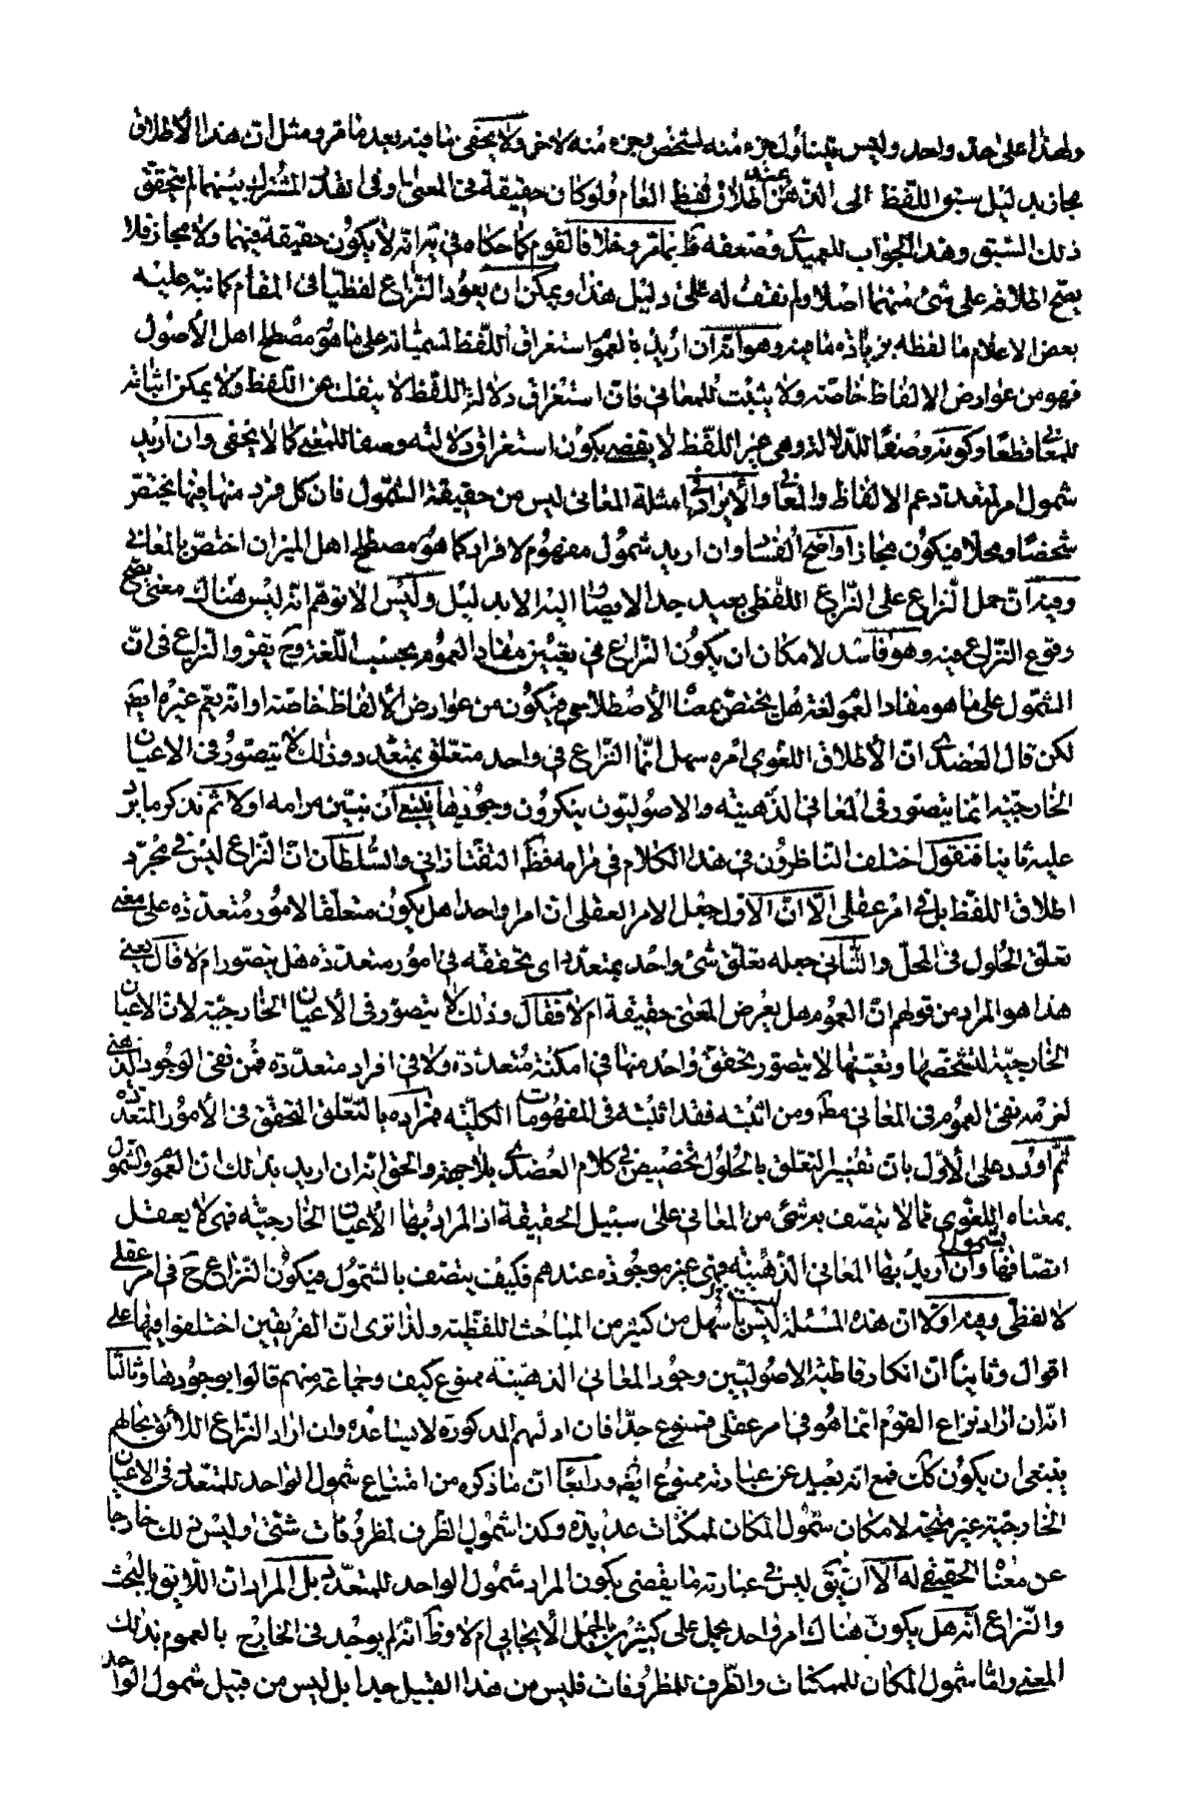 ولهذا على حدة واحد وليس يتناول جزء منه لشخص وجزء منه لاخر ولا يخفى ما فيه بعد ما مر ومثل ان هذا الاطلاق
مجاز بدليل سبق اللفظ الى الذهن عند اطلاق لفظ العام ولو كان حقيقة في المعنى او في القدر المشترك بينهما لم يتحقق
ذلك السبق وهذا الجواب للعميدى وضعفه ظ بما مر وخلافا لقوم كما حكاه في يه انه لا يكون حقيقة فيهما ولا مجاز فلا
يصح اطلاقه على شئ منهما اصلا ولم نقف له على دليل هذا ويمكن ان يعود النزاع لفظيا في المقام كما نبه عليه
بعض الاعلام ما لفظه بزيادة ما فيه وهو انه ان اريد بالعموم استغراق اللفظ لمسمياته على ما هو مصطلح اهل الأصول
فهو من عوارض الالفاظ خاصة ولا يثبت للمعاني فان استغراق دلالة اللفظ لا ينفك عن اللفظ ولا يمكن اثباته
للمعانى قطعا وكونه وصفا للدلالة وهى غير اللفظ لا يقضى بكون استغراق دلالته وصفا للمعنى كما لا يخفى وان اريد
شمول امر لمتعدد عم الالفاظ والمعانى والايراد في امثلة المعانى ليس من حقيقة الشمول فان كل فرد منها فيها يختص
شخصا ومحلا فيكون مجازا واضح الفساد وان اريد شمول مفهوم لافراد كما هو مصطلح اهل الميزان اختص بالمعانى
وفيه ان حمل النزاع على النزاع اللفظى بعيد جدا لا يصار اليه الا بدليل وليس الا توهم انه ليس هناك معنى يصح
وقوع النزاع فيه وهو فاسد لامكان ان يكون النزاع في تعيين مفاد العموم بحسب اللغة وح يقروا النزاع في ان
الشمول على ما هو مفاد العموم لغة هل يختص بمعناه الأصطلاحى فيكون من عوارض الألفاظ خاصة او انه يعم غيره ايضا
لكن قال العضدى ان الأطلاق اللغوي امره سهل انما النزاع في واحد متعلق بمتعدد وذلك لا يتصور في الاعيان
الخارجية انما يتصور في المعانى الذهنية والاصوليون ينكرون وجودها فينبغى ان نبين مرامه اولا ثم نذكر ما يرد
عليه ثانيا فنقول اختلف الناظرون في هذا الكلام في مرامه فظ التفتازانى والسلطان ان النزاع ليس في مجرد
اطلاق اللفظ بل في امر عقلى الا ان الاول جعل الامر العقلى ان امرا واحدا هل يكون متعلقا لامور متعددة على معنى
تعلق الحلول في المحل والثانى جعله تعلق شئ واحد بمتعدد اى تحققه في امور متعددة هل يتصور ام لا قال يعنى
هذا هو المراد من قولهم ان العموم هل يعرض المعنى حقيقة ام لا فقال وذلك لا يتصور في الأعيان الخارجية لان الاعيان
الخارجية لتشخصها وتعينها لا يتصور تحقق واحد منها في امكنة متعددة ولا في افراد متعددة فمن نفى الوجود الذهنى
لزمه نفى العموم في المعانى مط ومن اثبته فقد اثبته في المفهومات الكلية فمراده بالتعلق التحقق في الأمور المتعددة
ثم اورد على الأول بان تفسير التعلق بالحلول تخصيص في كلام العضدى بلا جهة والحق انه ان اريد بذلك ان العموم والشمول
بمعناه اللغوى مما لا يتصف به شئ من المعانى على سبيل الحقيقة اذ المراد بها الأعيان الخارجية فهى لا يعقل
اتصافها بشمول وان اريد بها المعانى الذهنية فهى غير موجودة عندهم فكيف يتصف بالشمول فيكون النزاع ح في امر عقلى
لا لفظى وفيه اولا ان هذه المسئلة ليست باسهل من كثير من المباحث اللفظية ولذا ترى ان الفريقين اختلفوا فيها على
اقوال وثانيا ان انكار قاطبة الاصوليين وجود المعانى الذهنية ممنوع كيف وجماعة منهم قالوا بوجودها وثالثا
انه ان اراد نزاع القوم انما هو في امر عقلى فممنوع جدا فان ادلتهم المذكورة لا يساعده وان اراد النزاع اللائق بحالهم
ينبغى ان يكون كك فمع انه بعيد عن عبارته ممنوع ايضا ورابعا ان ما ذكره من امتناع شمول الواحد للمتعدد في الاعيان
الخارجية غير متجه لامكان شمول المكان لممكنات عديدة وكذا شمول الظرف لمظروفات شتى وليس ذلك خارجا
عن معناه الحقيقى له الا ان يق ليس في عبارته ما يقضى بكون المراد شمول الواحد للمتعدد بل المراد ان اللائق بالبحث
والنزاع انه هل يكون هناك امر واحد يحمل على كثيرين بالحمل الأيجابى ام لا وظ انه لم يوجد في الخارج بالعموم بذلك
المعنى واما شمول المكان للممكنات والظرف للمظروفات فليس من هذا القبيل جدا بل ليس من قبيل شمول الواحد